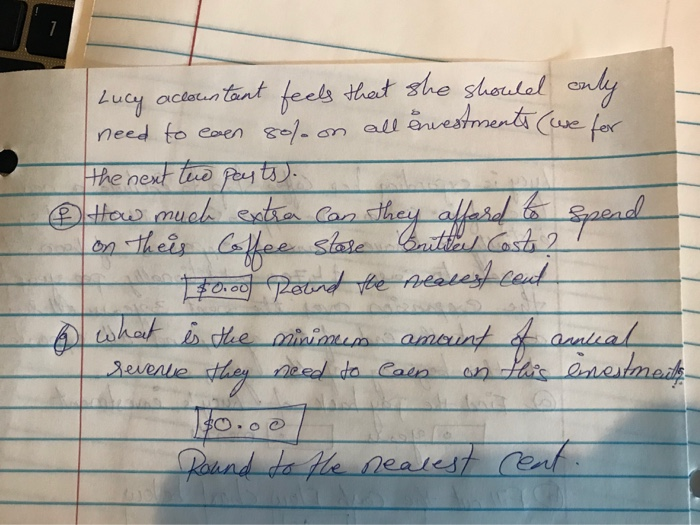 7
Lucy accountant feels that she should only
need to earn 80% on all investments (use for
the next two parts).
f How much extra can they afford to spend
on their Coffee store Initial Costs?
$0.00 Round the nearest cent
g what is the minimum amount of annual
revenue they need to earn on this investments
$0.00
Round to the nearest cent.